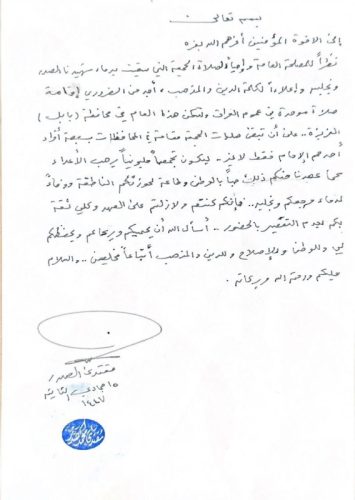 بسمه تعالى
إلى الاخوة المؤمنين أعزهم الله بعزه
نظراً للمصلحة العامة وإحياءً لصلاة الجمعة التي سقيت بدماء شهيدنا الصدر
ونجليه وإعلاءً لكلمة الدين والمذهب، أجد من الضروري إقامة
صلاة موحدة في عموم العراق ولتكن هذا العام في محافظة (بابل)
العزيزة.. على أن تبقى صلوات الجمعة مقامة في المحافظات بسبعة أفراد
أحدهم الإمام فقط لا غير. ليكون تجمعاً مليونياً يرهب الأعداء
كما عهدنا منكم ذلك حباً بالوطن وطاعة لحوزتكم الناطقة ووفاءً
لدماء مرجعكم ونجليه.. فإنكم كنتم ولازلتم على العهد وكلي ثقة
بكم بعدم التقصير بالحضور.. أسأل الله أن يحميكم ويرعاكم ويحفظكم
لي وللوطن وللإصلاح وللدين والمذهب أتباعاً مخلصين.. والسلام
عليكم ورحمة الله وبركاته.
مقتدى الصدر
١٥ جمادى الثانية
١٤٤٧